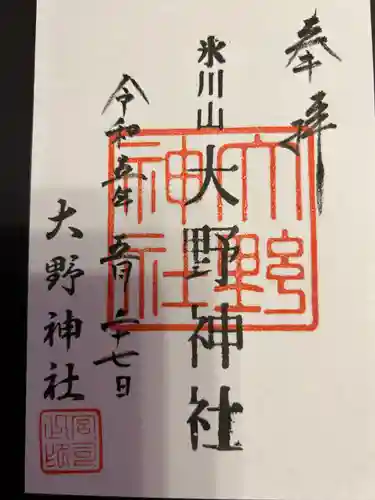 奉拝
氷川山 大野神社
大野神社
令和五年 五月二十七日
大野神社